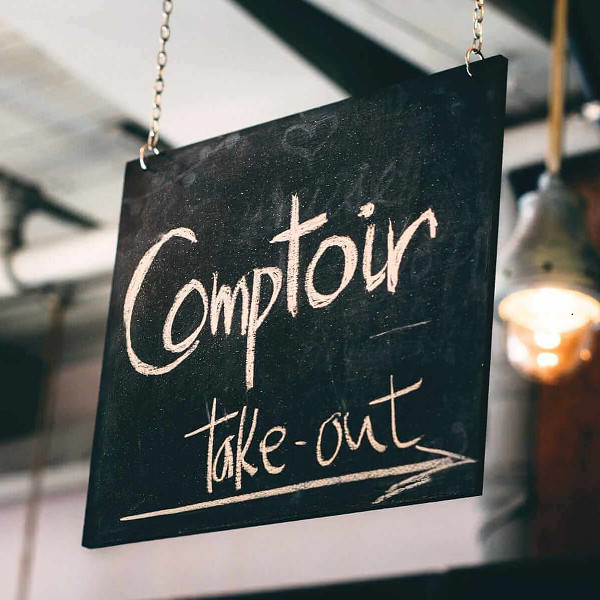 Comptoir
take-out